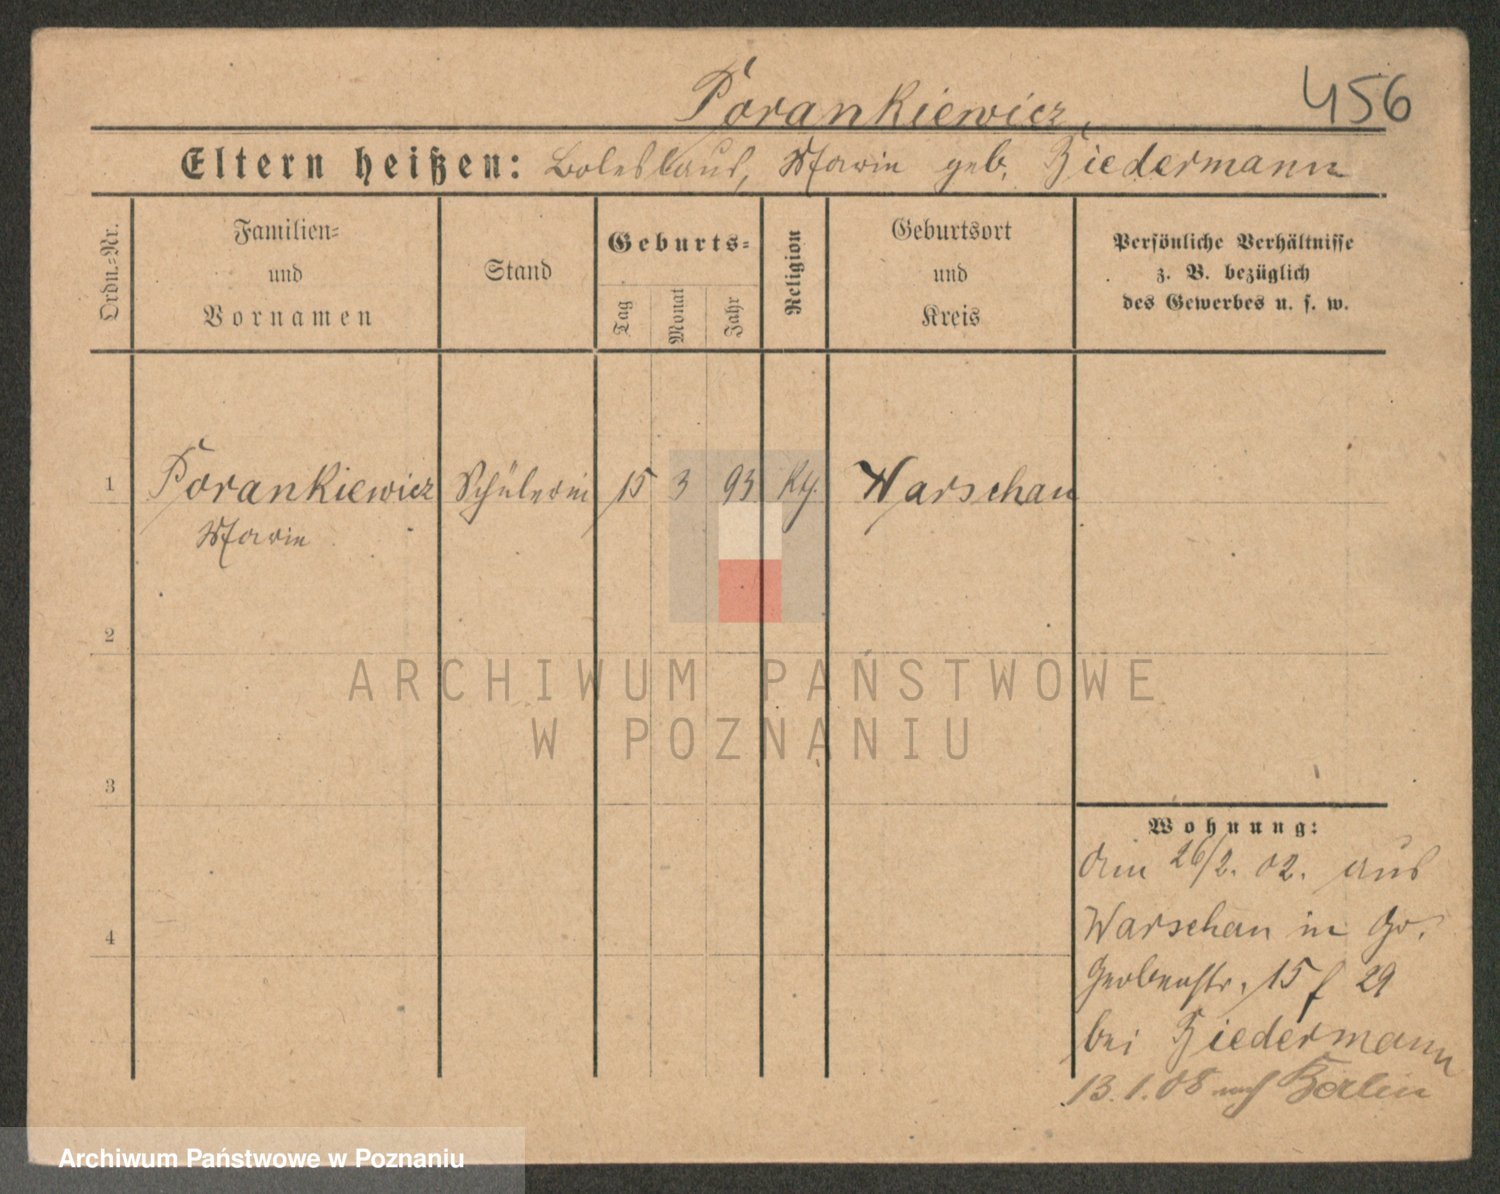 Porankiewicz,
456
Eltern heißen: Boleslaus, Marie geb. Biedermann
Ordn.-Nr.
Familien-
und
Vornamen
Stand
Geburts-
Tag
Monat
Jahr
Religion
Geburtsort
und
Kreis
Persönliche Verhältnisse
z. B. bezüglich
des Gewerbes u. s. w.
1 Porankiewicz Schülerin 15 3 93 kth. Warschau
Marie
2
3
4
Wohnung:
Am 26/2. 02. aus
Warschau in
Grabenstr. 15 f 29
bei Biedermann
13.1.08 nach Berlin
ARCHIWUM PAŃSTWOWE
W POZNANIU
Archiwum Państwowe w Poznaniu